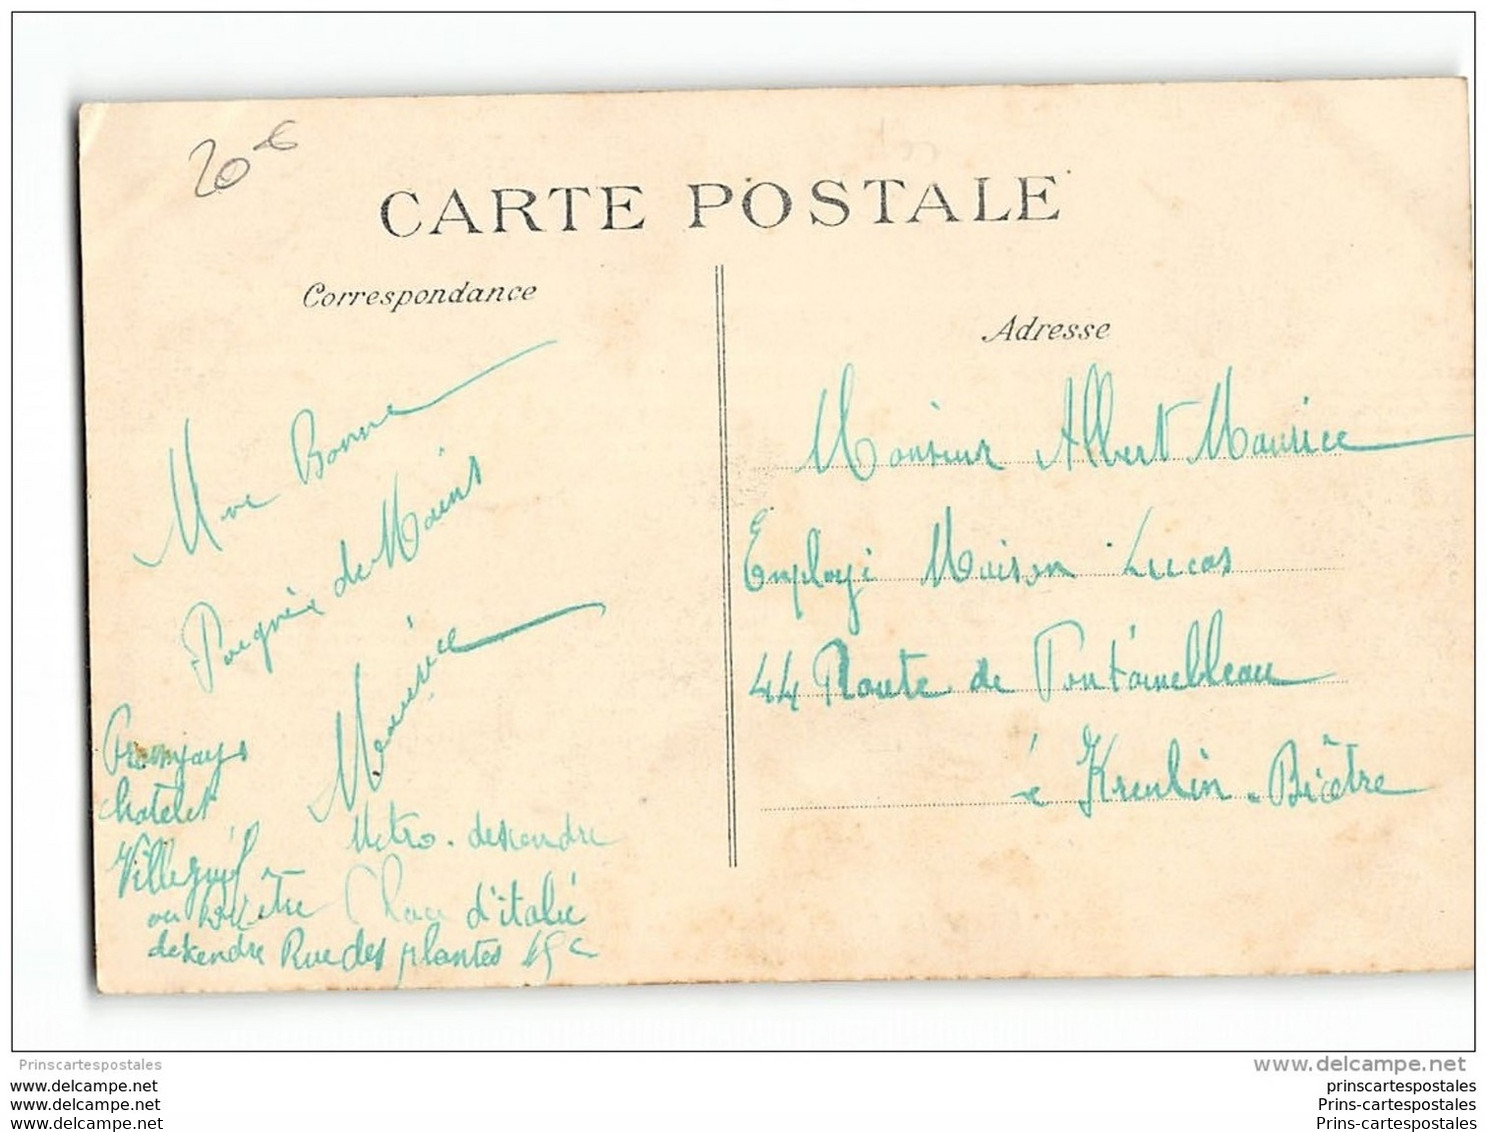 20 €
CARTE POSTALE
Correspondance
Une Bonne
Poignée de Mains
Maurice
Tramways
Chatelet
Villejuif
ou Bicêtre
desendre Rue des plantes 15 c
Metro. desendre
Place d'italie
Adresse
Monsieur Albert Maurice
Employé Maison Lucas
44 Route de Fontainebleau
à Kremlin-Bicêtre
Prinscartespostales
www.delcampe.net
www.delcampe.net
www.delcampe.net
www.delcampe.net
prinscartespostales
Prins-cartespostales
Prins-cartespostales